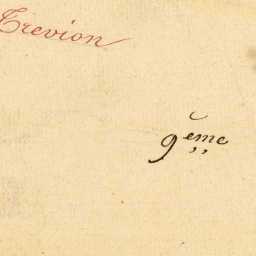 Trevion
9eme